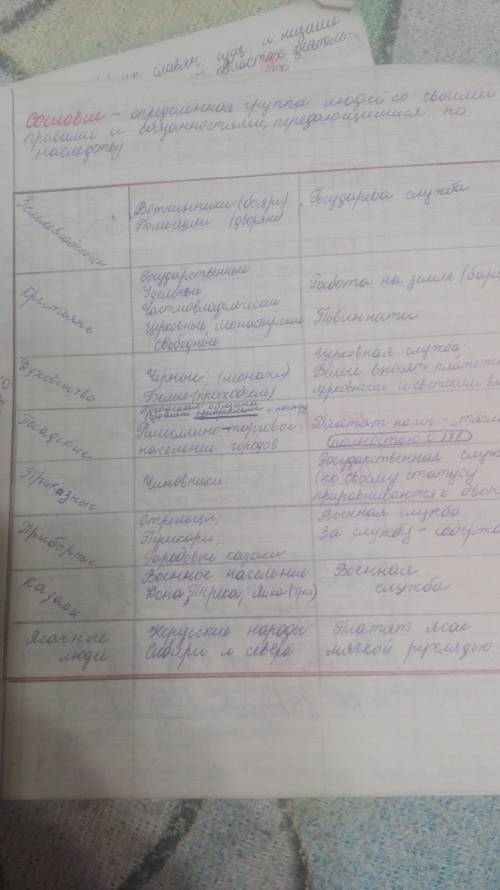 славян
Сословие – определенная группа людей со своими
правами и обязанностями, передающимися по
наследству
Землевладельцы
Вотчинники (бояре)
Помещики (дворяне)
Государева служба
Крестьяне
Государственные
Удельные
Частновладельческие
Церковные, монастырские
свободные
Работа на земле (бар
Повинности
Духовенство
Черные (монахи)
Белые (приходские)
Церковная служба
Белые вносят платежи
церковным и светским вл
Посадские
Ремесленно-торговое
население городов
Платят налог – тягло
(полностью с
Приказные
Чиновники
Государственная служ
(по своему статусу
приравниваются к двор
Приборные
Стрельцы,
Пушкари,
Городовые казаки
Военная служба
За службу – содерж
Казаки
Военное население
Дона, Терека, Яика (Урал)
Военная
служба
Ясачные
люди
Нерусские народы
Сибири и севера
Платят ясак
мягкой рухлядью